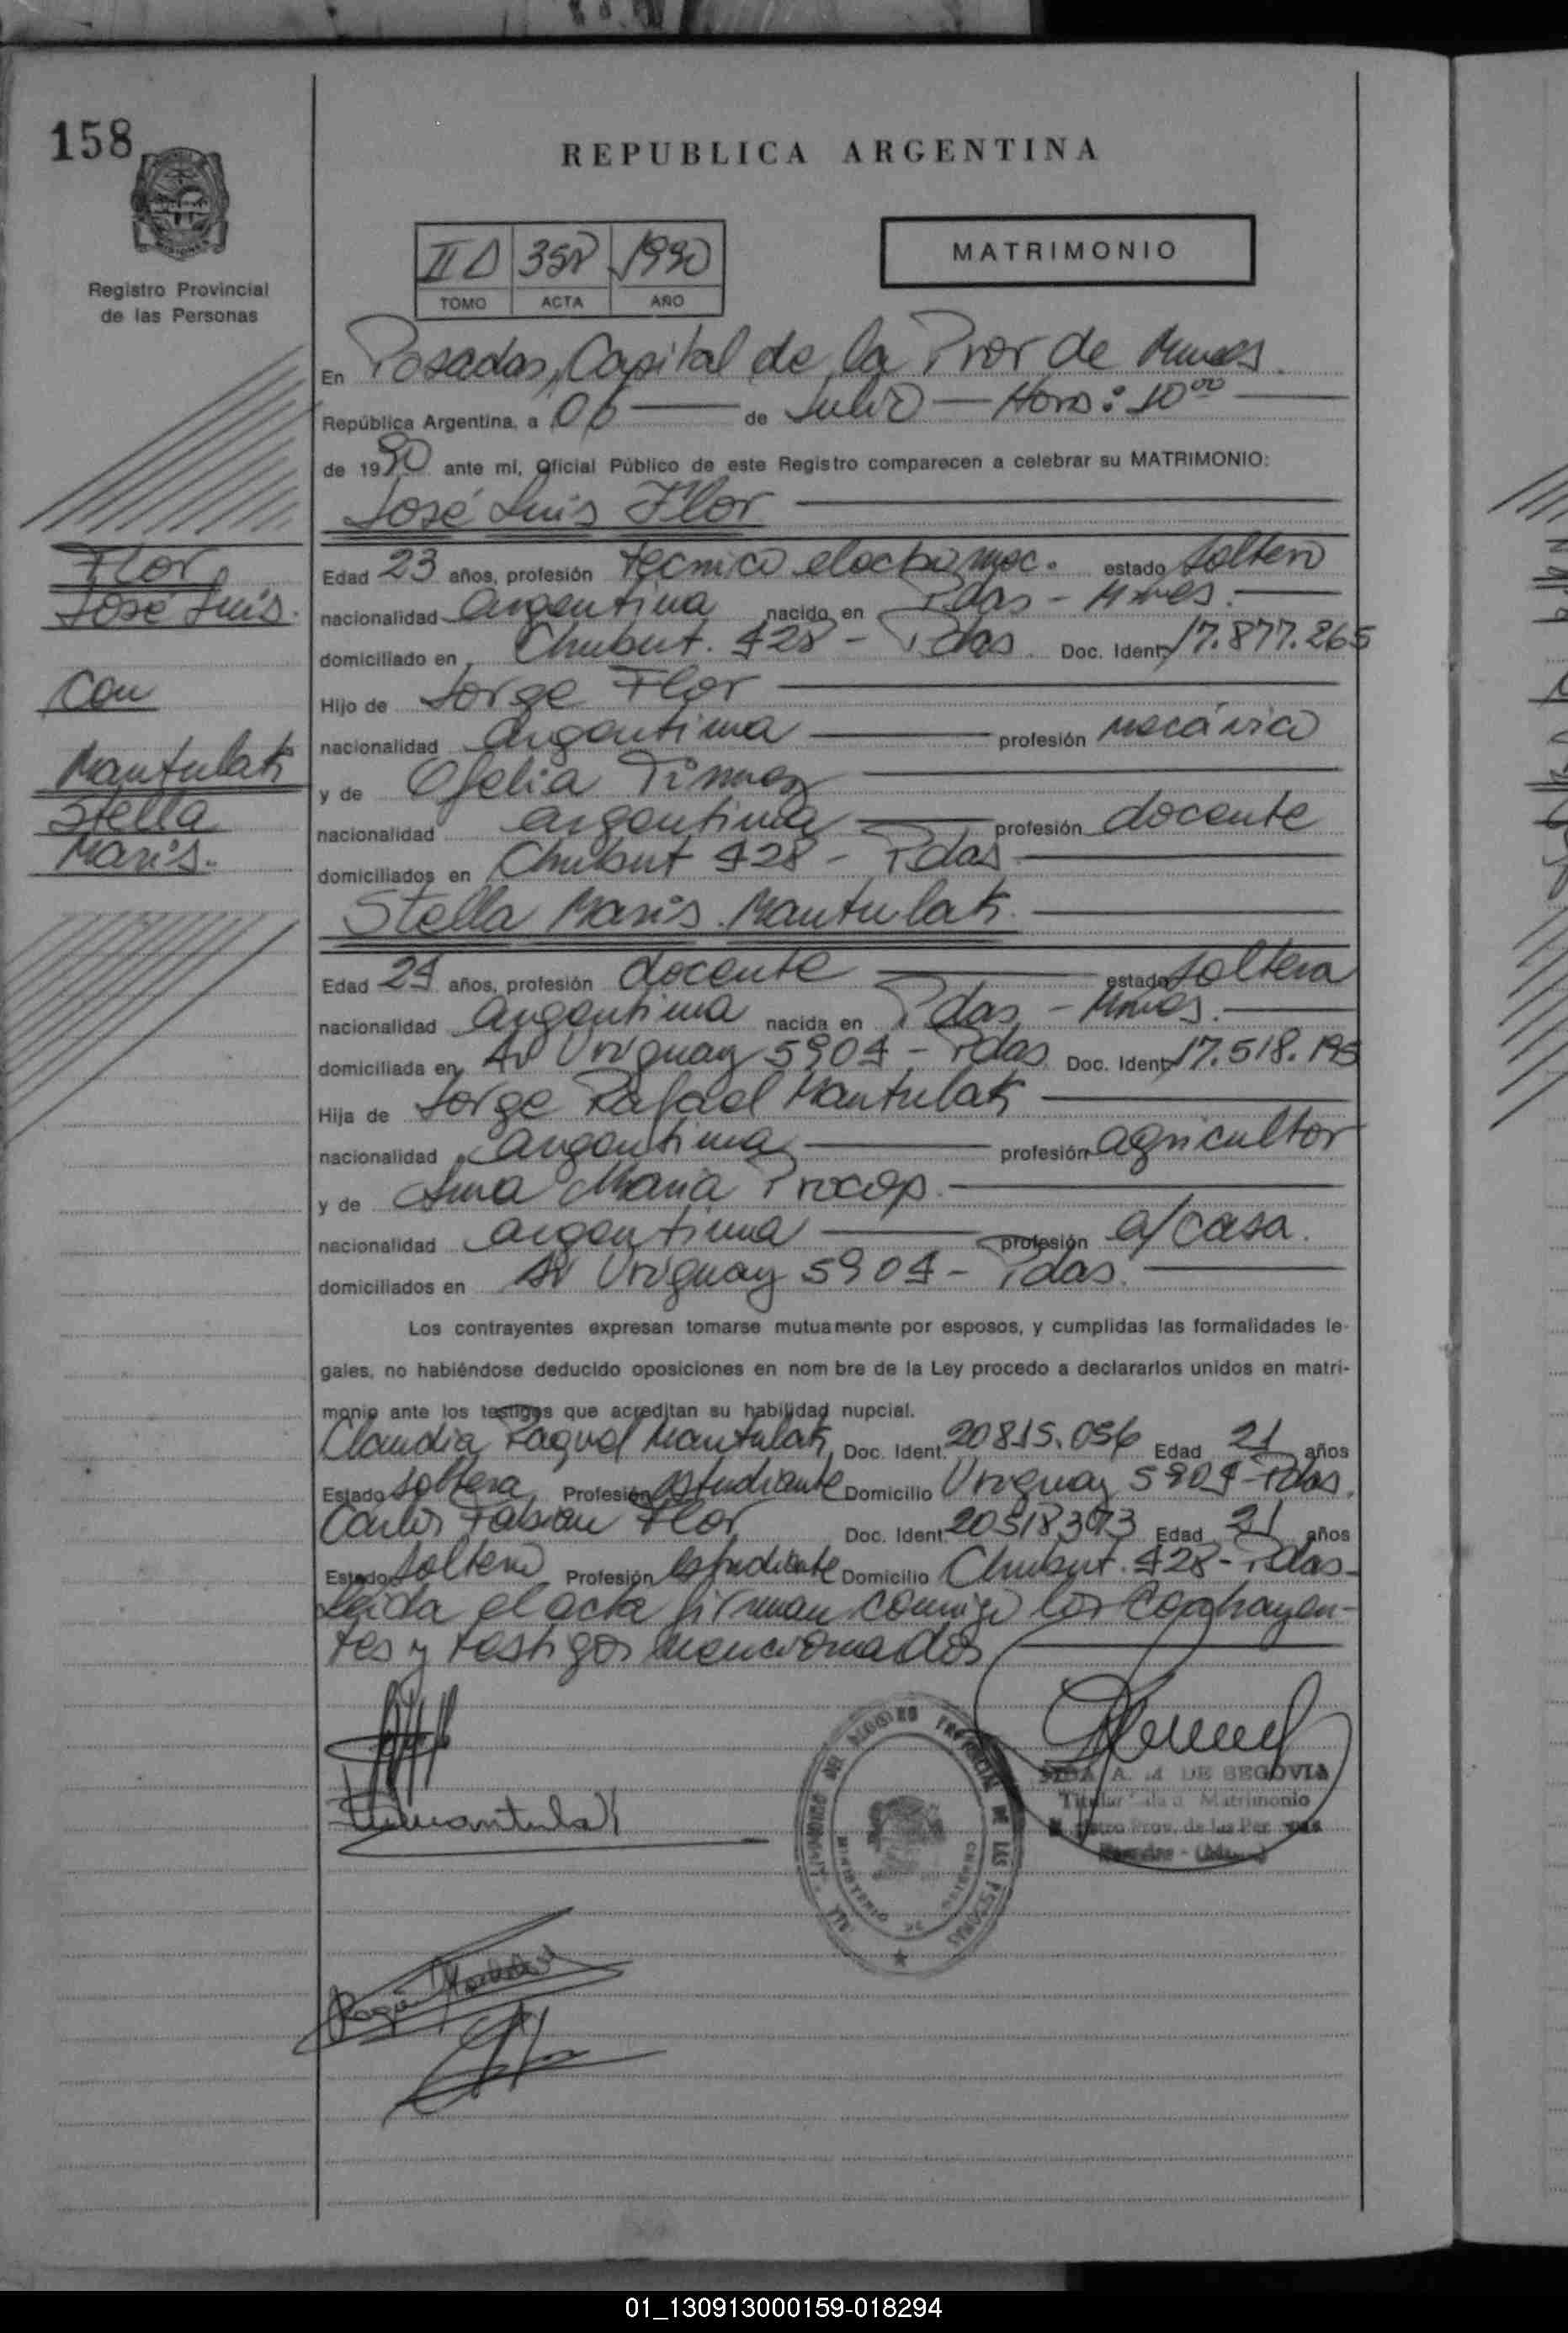 158
REPUBLICA ARGENTINA
Registro Provincial
de las Personas
II 1990
TOMO ACTA AÑO
MATRIMONIO
En Posadas, Capital de la Prov de Mnes.
República Argentina, a 06 de Julio Hora: 10 00
de 1990 ante mi, Oficial Público de este Registro comparecen a celebrar su MATRIMONIO:
José Luis Flor
Flor
José Luis.
Con
Mantulak
Stella
Maris.
Edad 23 años, profesión tecnico electromec. estado soltero
nacionalidad argentina nacido en Pdas - Mnes.
domiciliado en Chubut. 428 - Pdas Doc. Ident. 17.877.265
Hijo de Jorge Flor
nacionalidad argentina profesión mecánico
y de Ofelia
nacionalidad argentina profesión docente
domiciliados en Chubut 428 - Pdas
Stella Maris Mantulak.
Edad 24 años, profesión docente estado soltera
nacionalidad argentina nacida en Pdas - Mnes.
domiciliada en Av Uruguay 5904 - Pdas. Doc. Ident. 17.518.195
Hija de Jorge Rafael Mantulak
nacionalidad argentina profesión agricultor
y de Ana Maria Procop.
nacionalidad argentina profesión a/casa.
domiciliados en Av Uruguay 5904 - Pdas.
Los contrayentes expresan tomarse mutuamente por esposos, y cumplidas las formalidades le-
gales, no habiéndose deducido oposiciones en nom bre de la Ley procedo a declararlos unidos en matri-
monio ante los testigos que acreditan su habilidad nupcial.
Claudia Raquel Mantulak, Doc. Ident. 20815.056 Edad 21 años
Estado soltera Profesión estudiante Domicilio Uruguay 5904 - Pdas.
Carlos Fabian Flor Doc. Ident. Edad 21 años
Estado soltero Profesión estudiante Domicilio Chubut. 428 - Pdas-
Leida el acta firman conmigo los Contrayen-
tes y testigos mencionados
A. M DE SEGOVIA
Titular Sala Matrimonio
Prov. de las Per
01_130913000159-018294